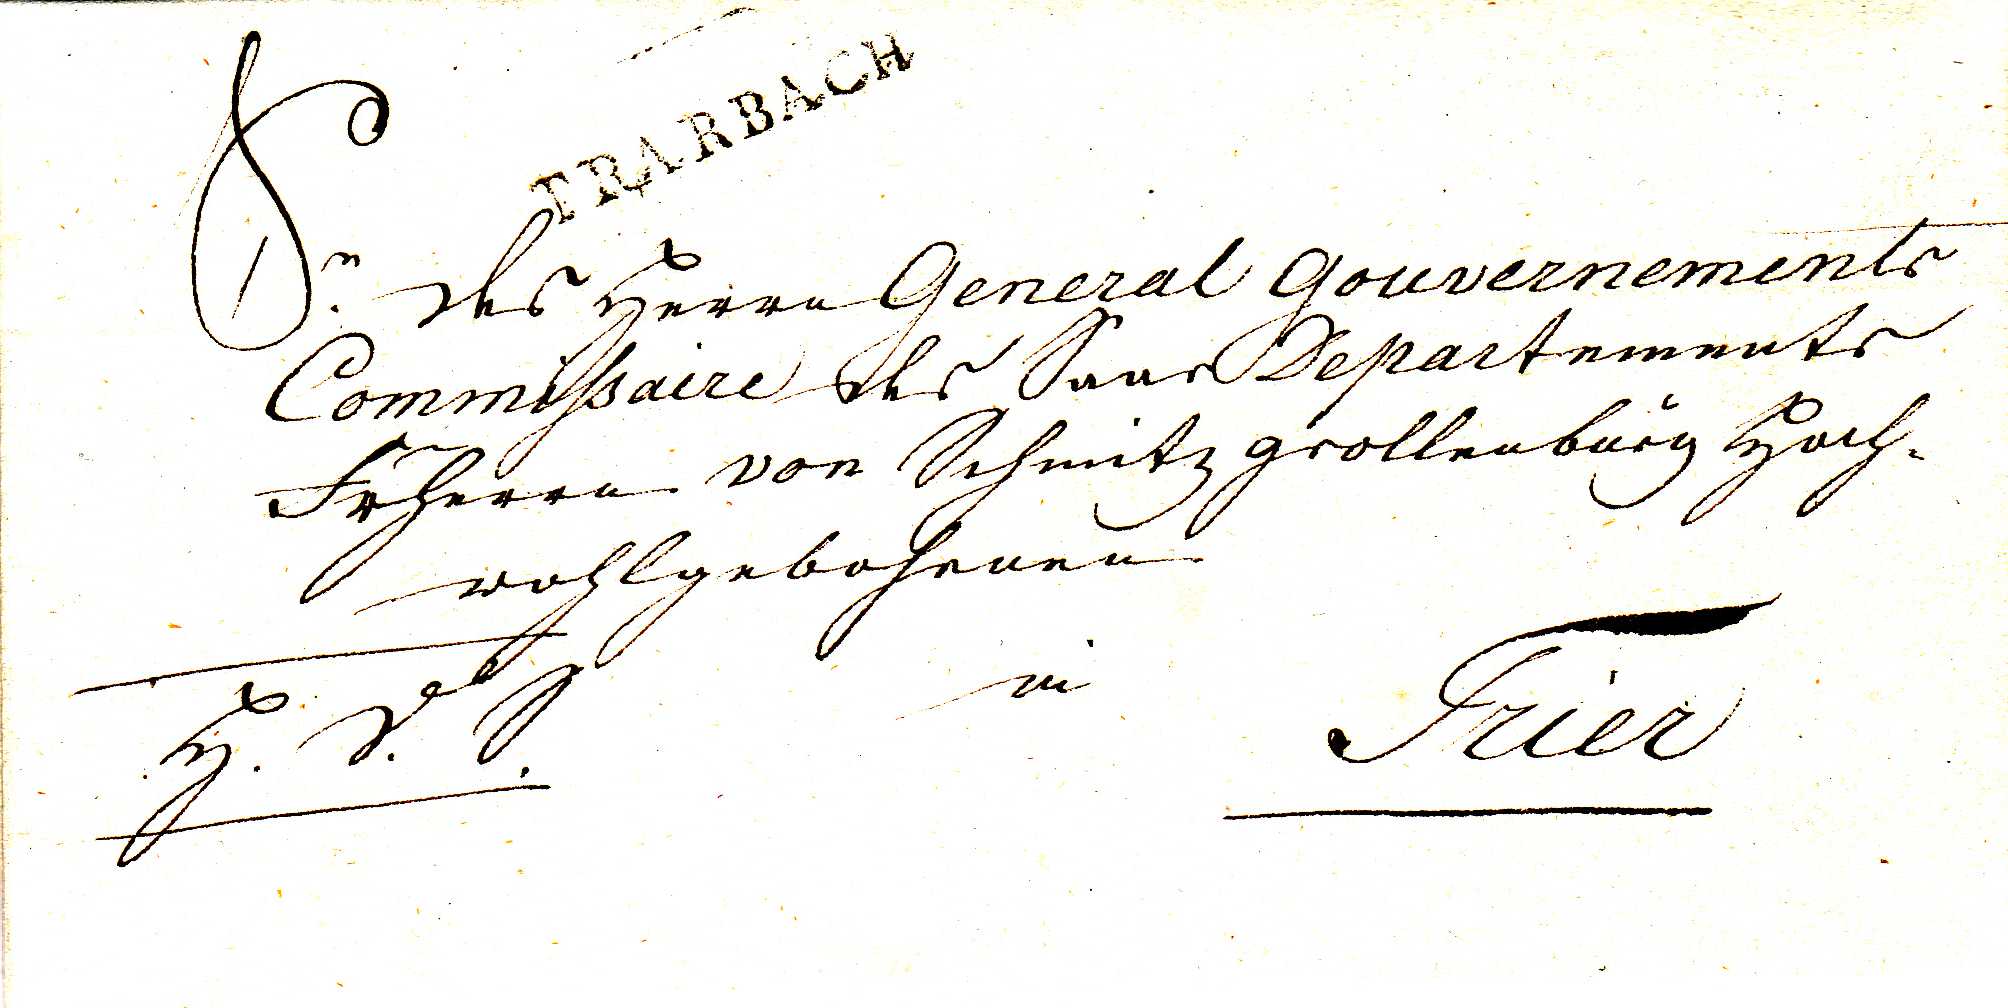 TRARBACH
des Herrn General Gouvernements
Commissaire des Saar Departements
FrHerrn von Schmitz grollenburg Hoch-
wohlgebohrenen
H. D. S.
in
Trier